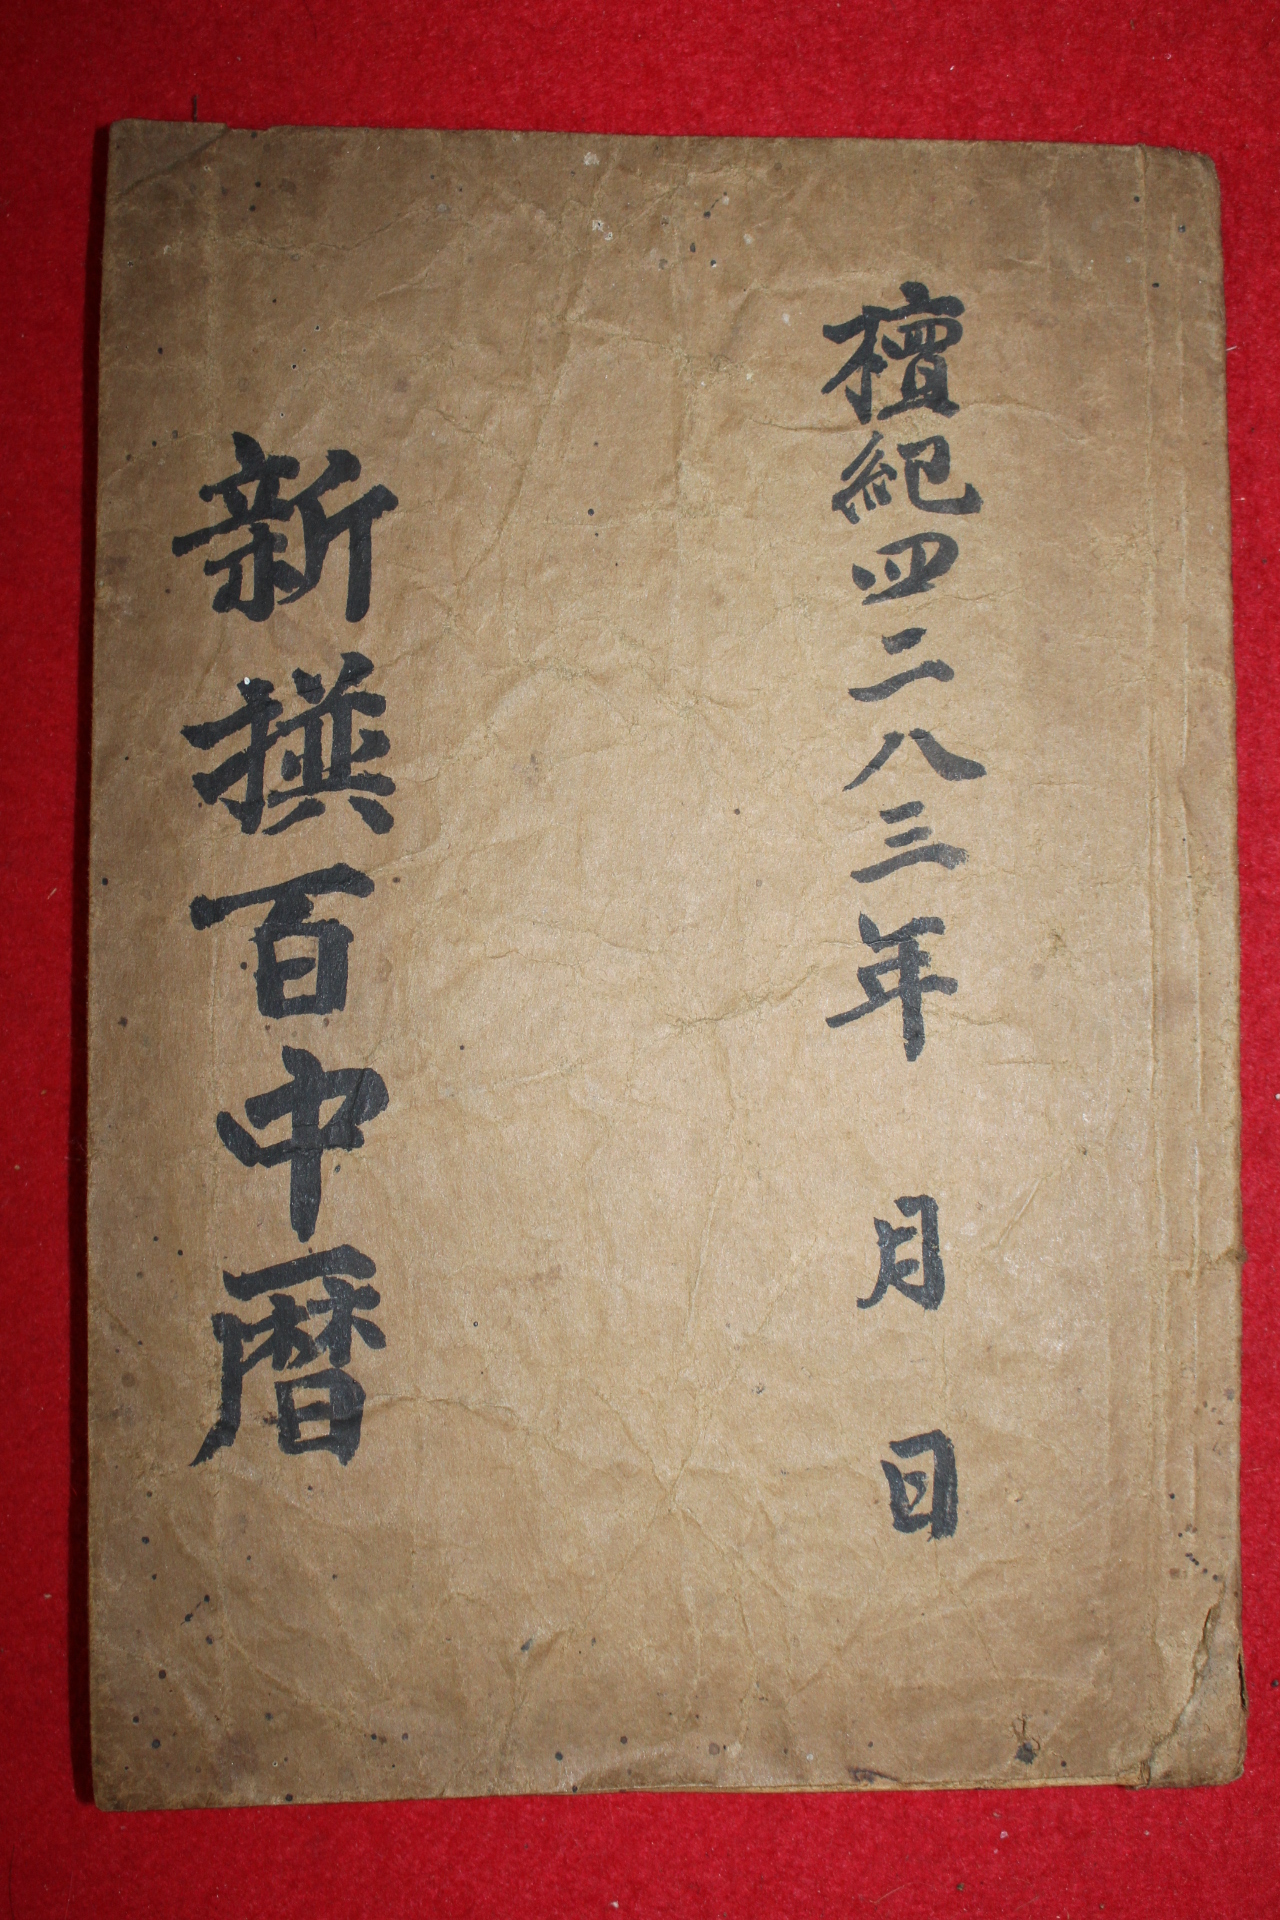 檀紀四二八三年 月 日
新撰百中曆